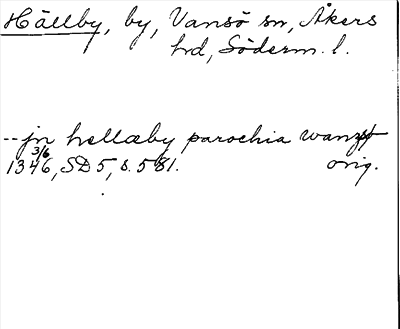 Hällby, by, Vansö sn, Åkers
hd, Söderm. l.
-- jn hellæby parochia
3/6
1346, SD 5, s. 581. orig.